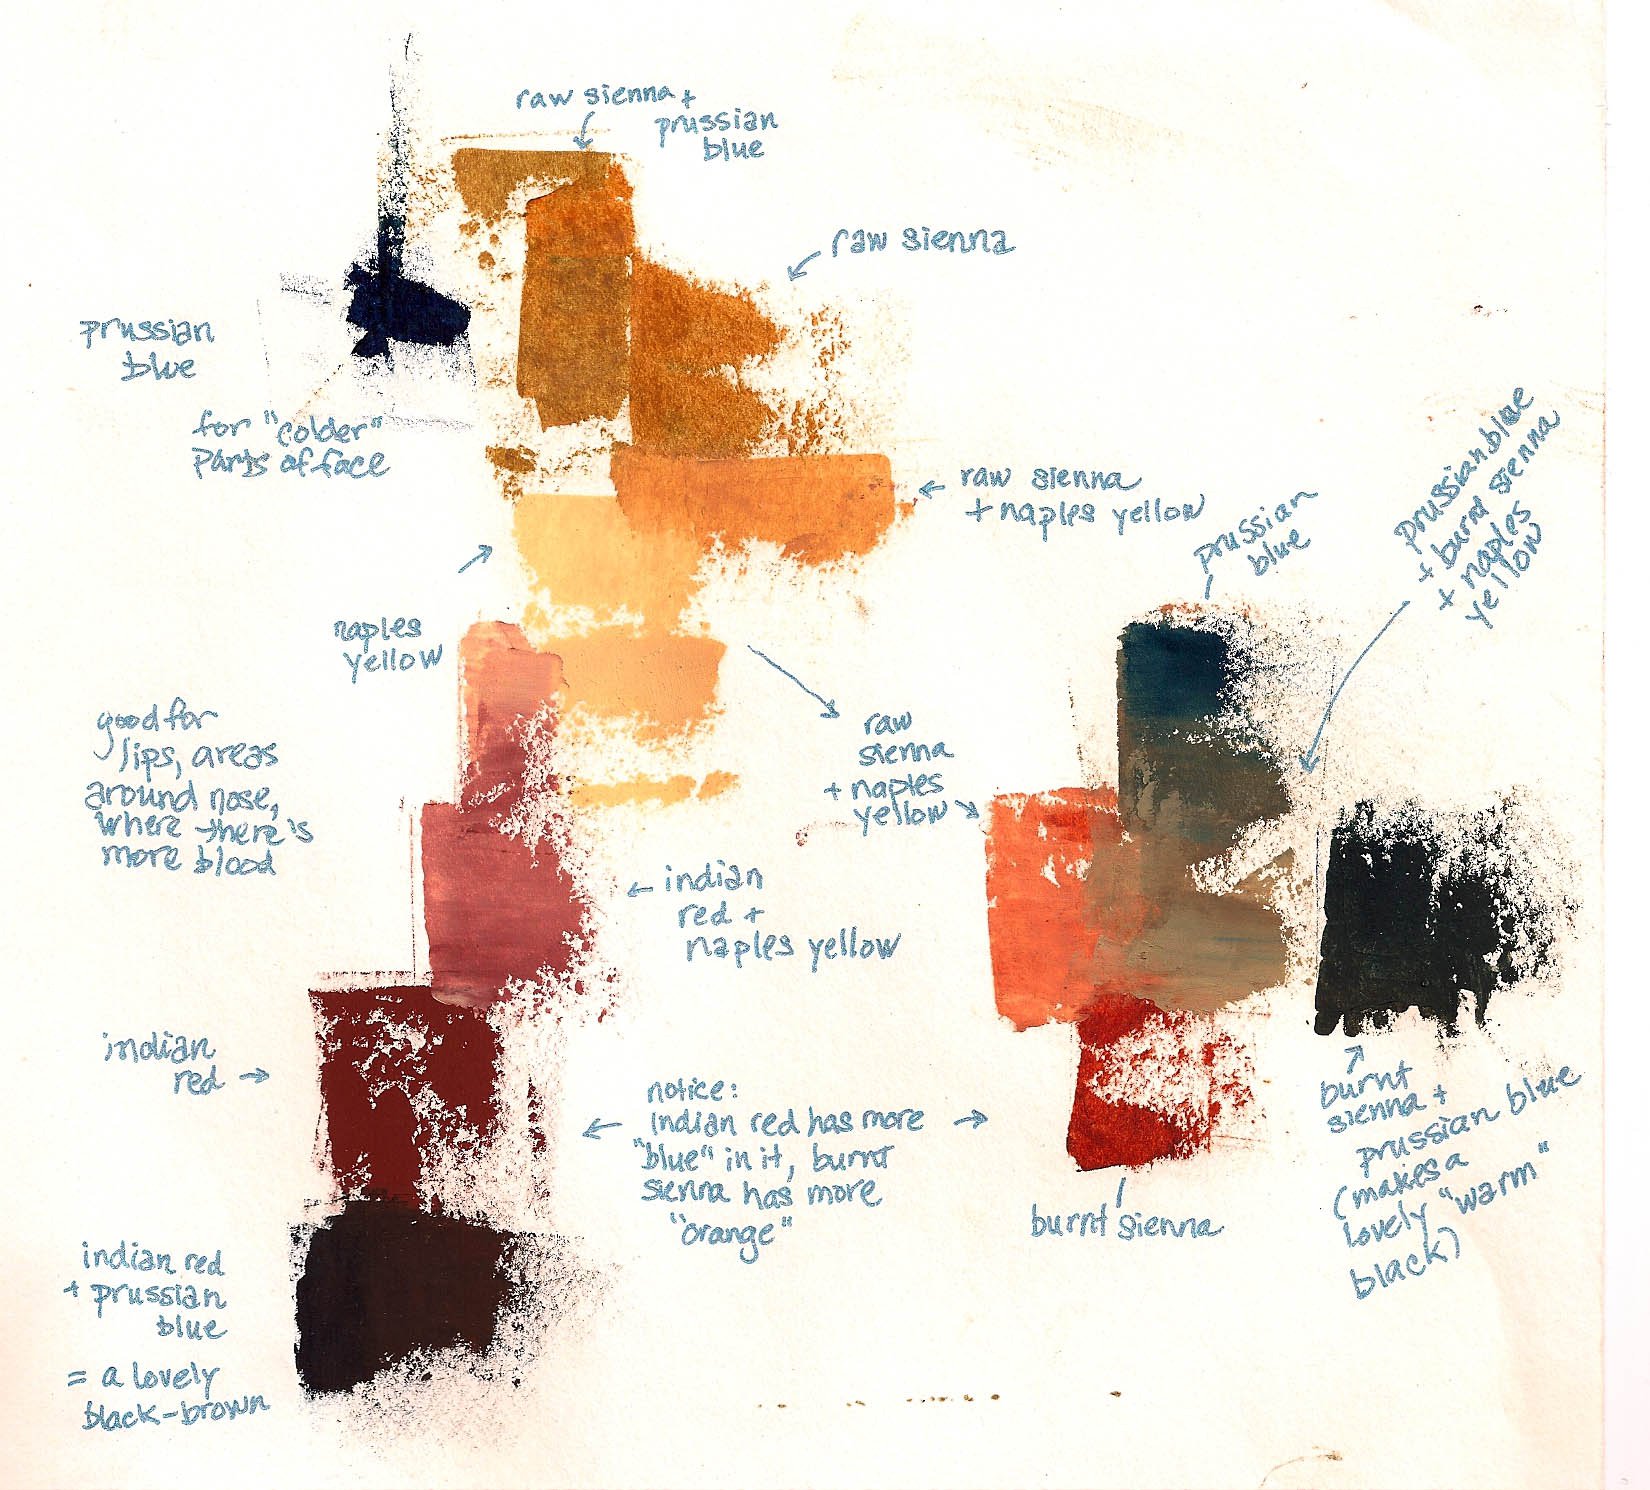 raw sienna +
prussian
blue
raw sienna
prussian
blue
for "colder"
parts of face
raw sienna
+ naples yellow
prussian
blue
prussian blue
+ burnt sienna
+ naples
yellow
naples
yellow
good for
lips, areas
around nose,
where there's
more blood
raw
sienna
+ naples
yellow
indian
red +
naples yellow
indian
red
notice:
indian red has more
"blue" in it, burnt
sienna has more
"orange"
burnt sienna
burnt
sienna +
prussian blue
(makes a
lovely "warm"
black)
indian red
+ prussian
blue
= a lovely
black-brown